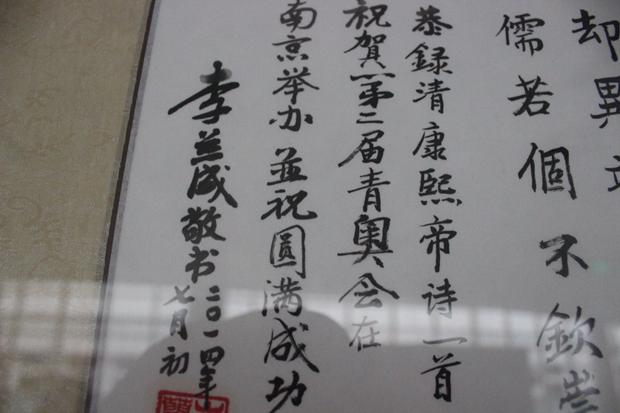 却異
儒若個不欽崇
恭録清康熙帝詩一首
祝賀第二届青奥会在
南京举办並祝圓满成功
李兰成敬书二〇一四年
七月初